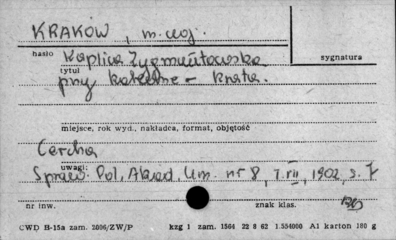 KRAKÓW, m. woj.
hasło
sygnatura
Kaplica Zygmuntowska
tytuł
przy katedrze - krata.
miejsce, rok wyd., nakładca, format, objętość
Cercha
uwagi
Spraw. Pol. Akad. Um. nr 8, T. VII, 1902, s. 7
nr inw.
znak klas.
CWD B-15a zam. 2806/ZW/P kzg 1 zam. 1564 22 8 62 1.554000 A1 karton 180 g